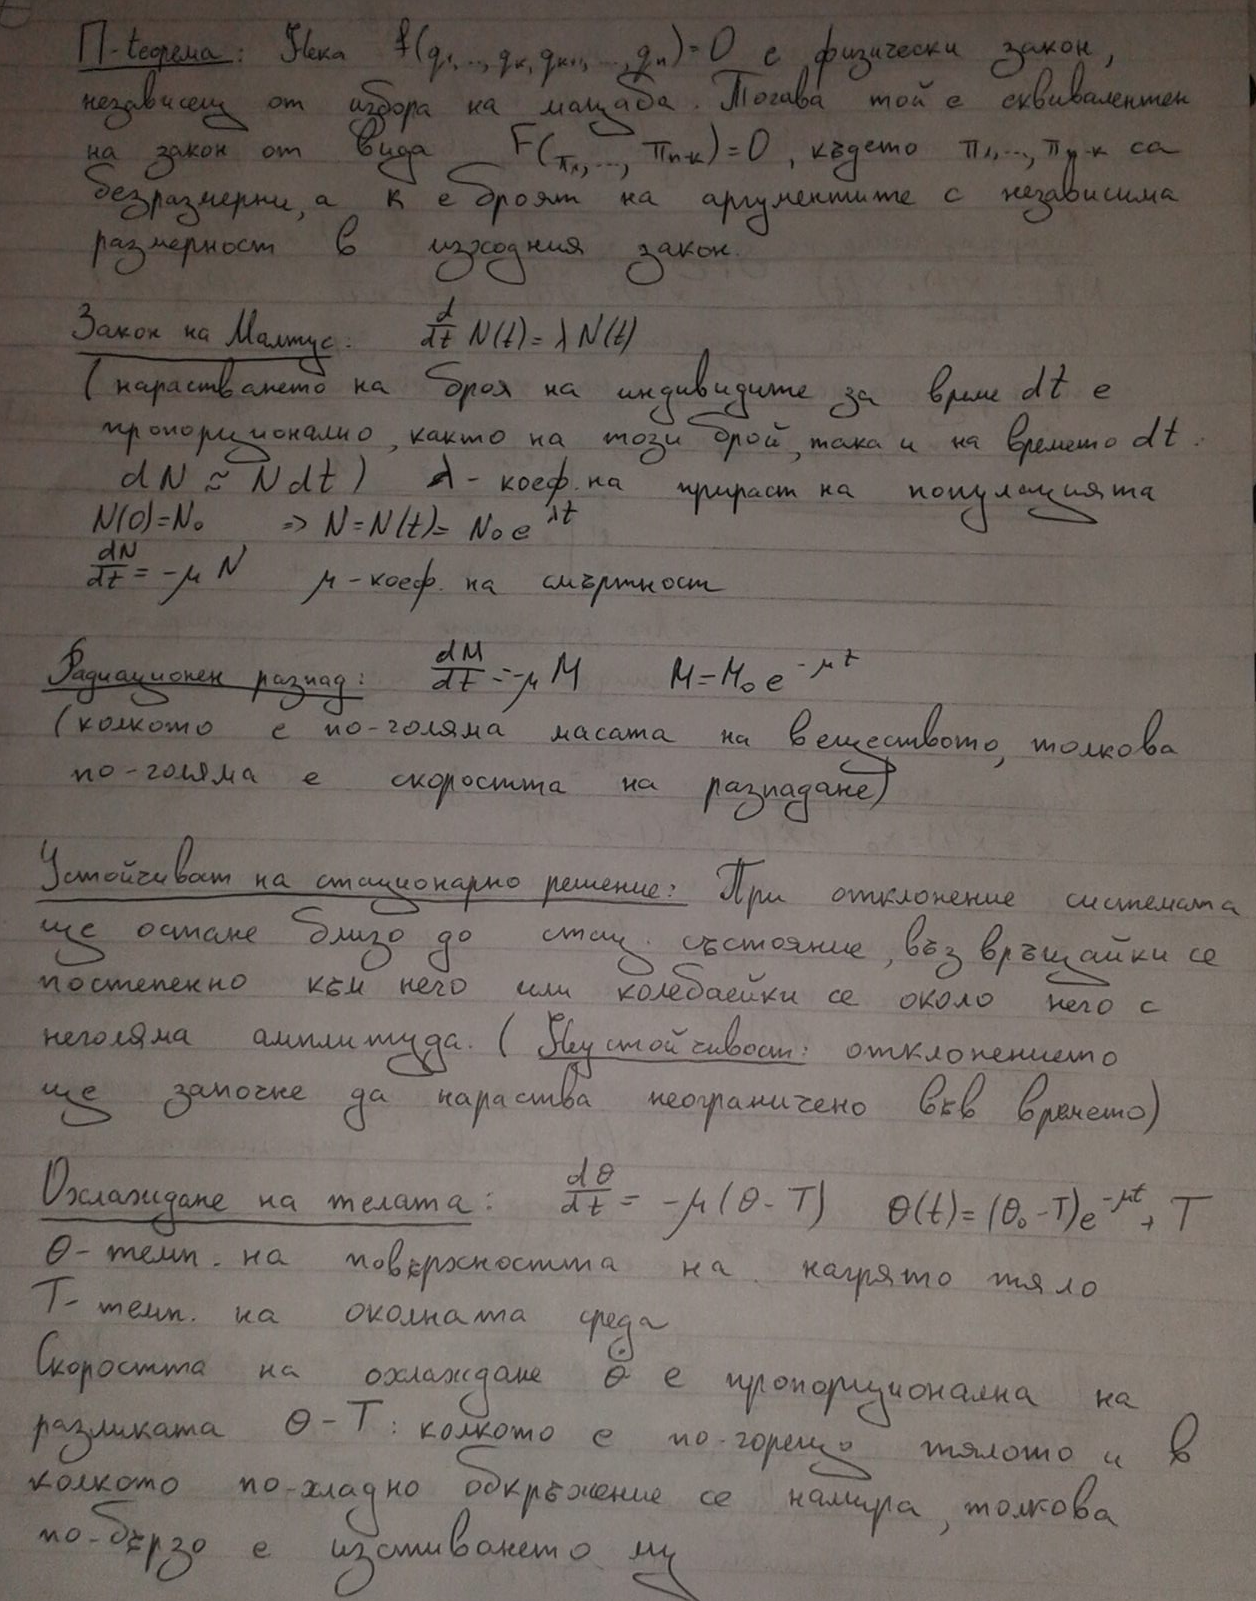 П-теорема: Нека f(q₁,...,qₖ,qₖ₊₁,...,qₙ)=0 е физически закон,
независещ от избора на мащаба. Тогава той е еквивалентен
на закон от вида F(π₁,..., πₙ₋ₖ)=0, където π₁,..., πₙ₋ₖ са
безразмерни, а k е броят на аргументите с независима
размерност в изходния закон.
Закон на Малтус: d/dt N(t) = λ N(t)
(нарастването на броя на индивидите за време dt е
пропорционално, както на този брой, така и на времето dt.
dN ≈ N dt) λ - коеф. на прираст на популацията
N(0)=N₀ => N=N(t)= N₀ e^λt
dN/dt = -μ N μ - коеф. на смъртност
Радиационен разпад: dM/dt = -μ M M = M₀ e^-μt
(колкото е по-голяма масата на веществото, толкова
по-голяма е скоростта на разпадане)
Устойчивост на стационарно решение: При отклонение системата
ще остане близо до стац. състояние, възвръщайки се
постепенно към него или колебаейки се около него с
неголяма амплитуда. (Неустойчивост: отклонението
ще започне да нараства неограничено във времето)
Охлаждане на телата: dθ/dt = -μ(θ-T) θ(t)=(θ₀-T)e^-μt + T
θ - темп. на повърхността на нагрято тяло
T - темп. на околната среда
Скоростта на охлаждане θ̇ е пропорционална на
разликата θ-T: колкото е по-горещо тялото и в
колкото по-хладно обкръжение се намира, толкова
по-бързо е изстиването му